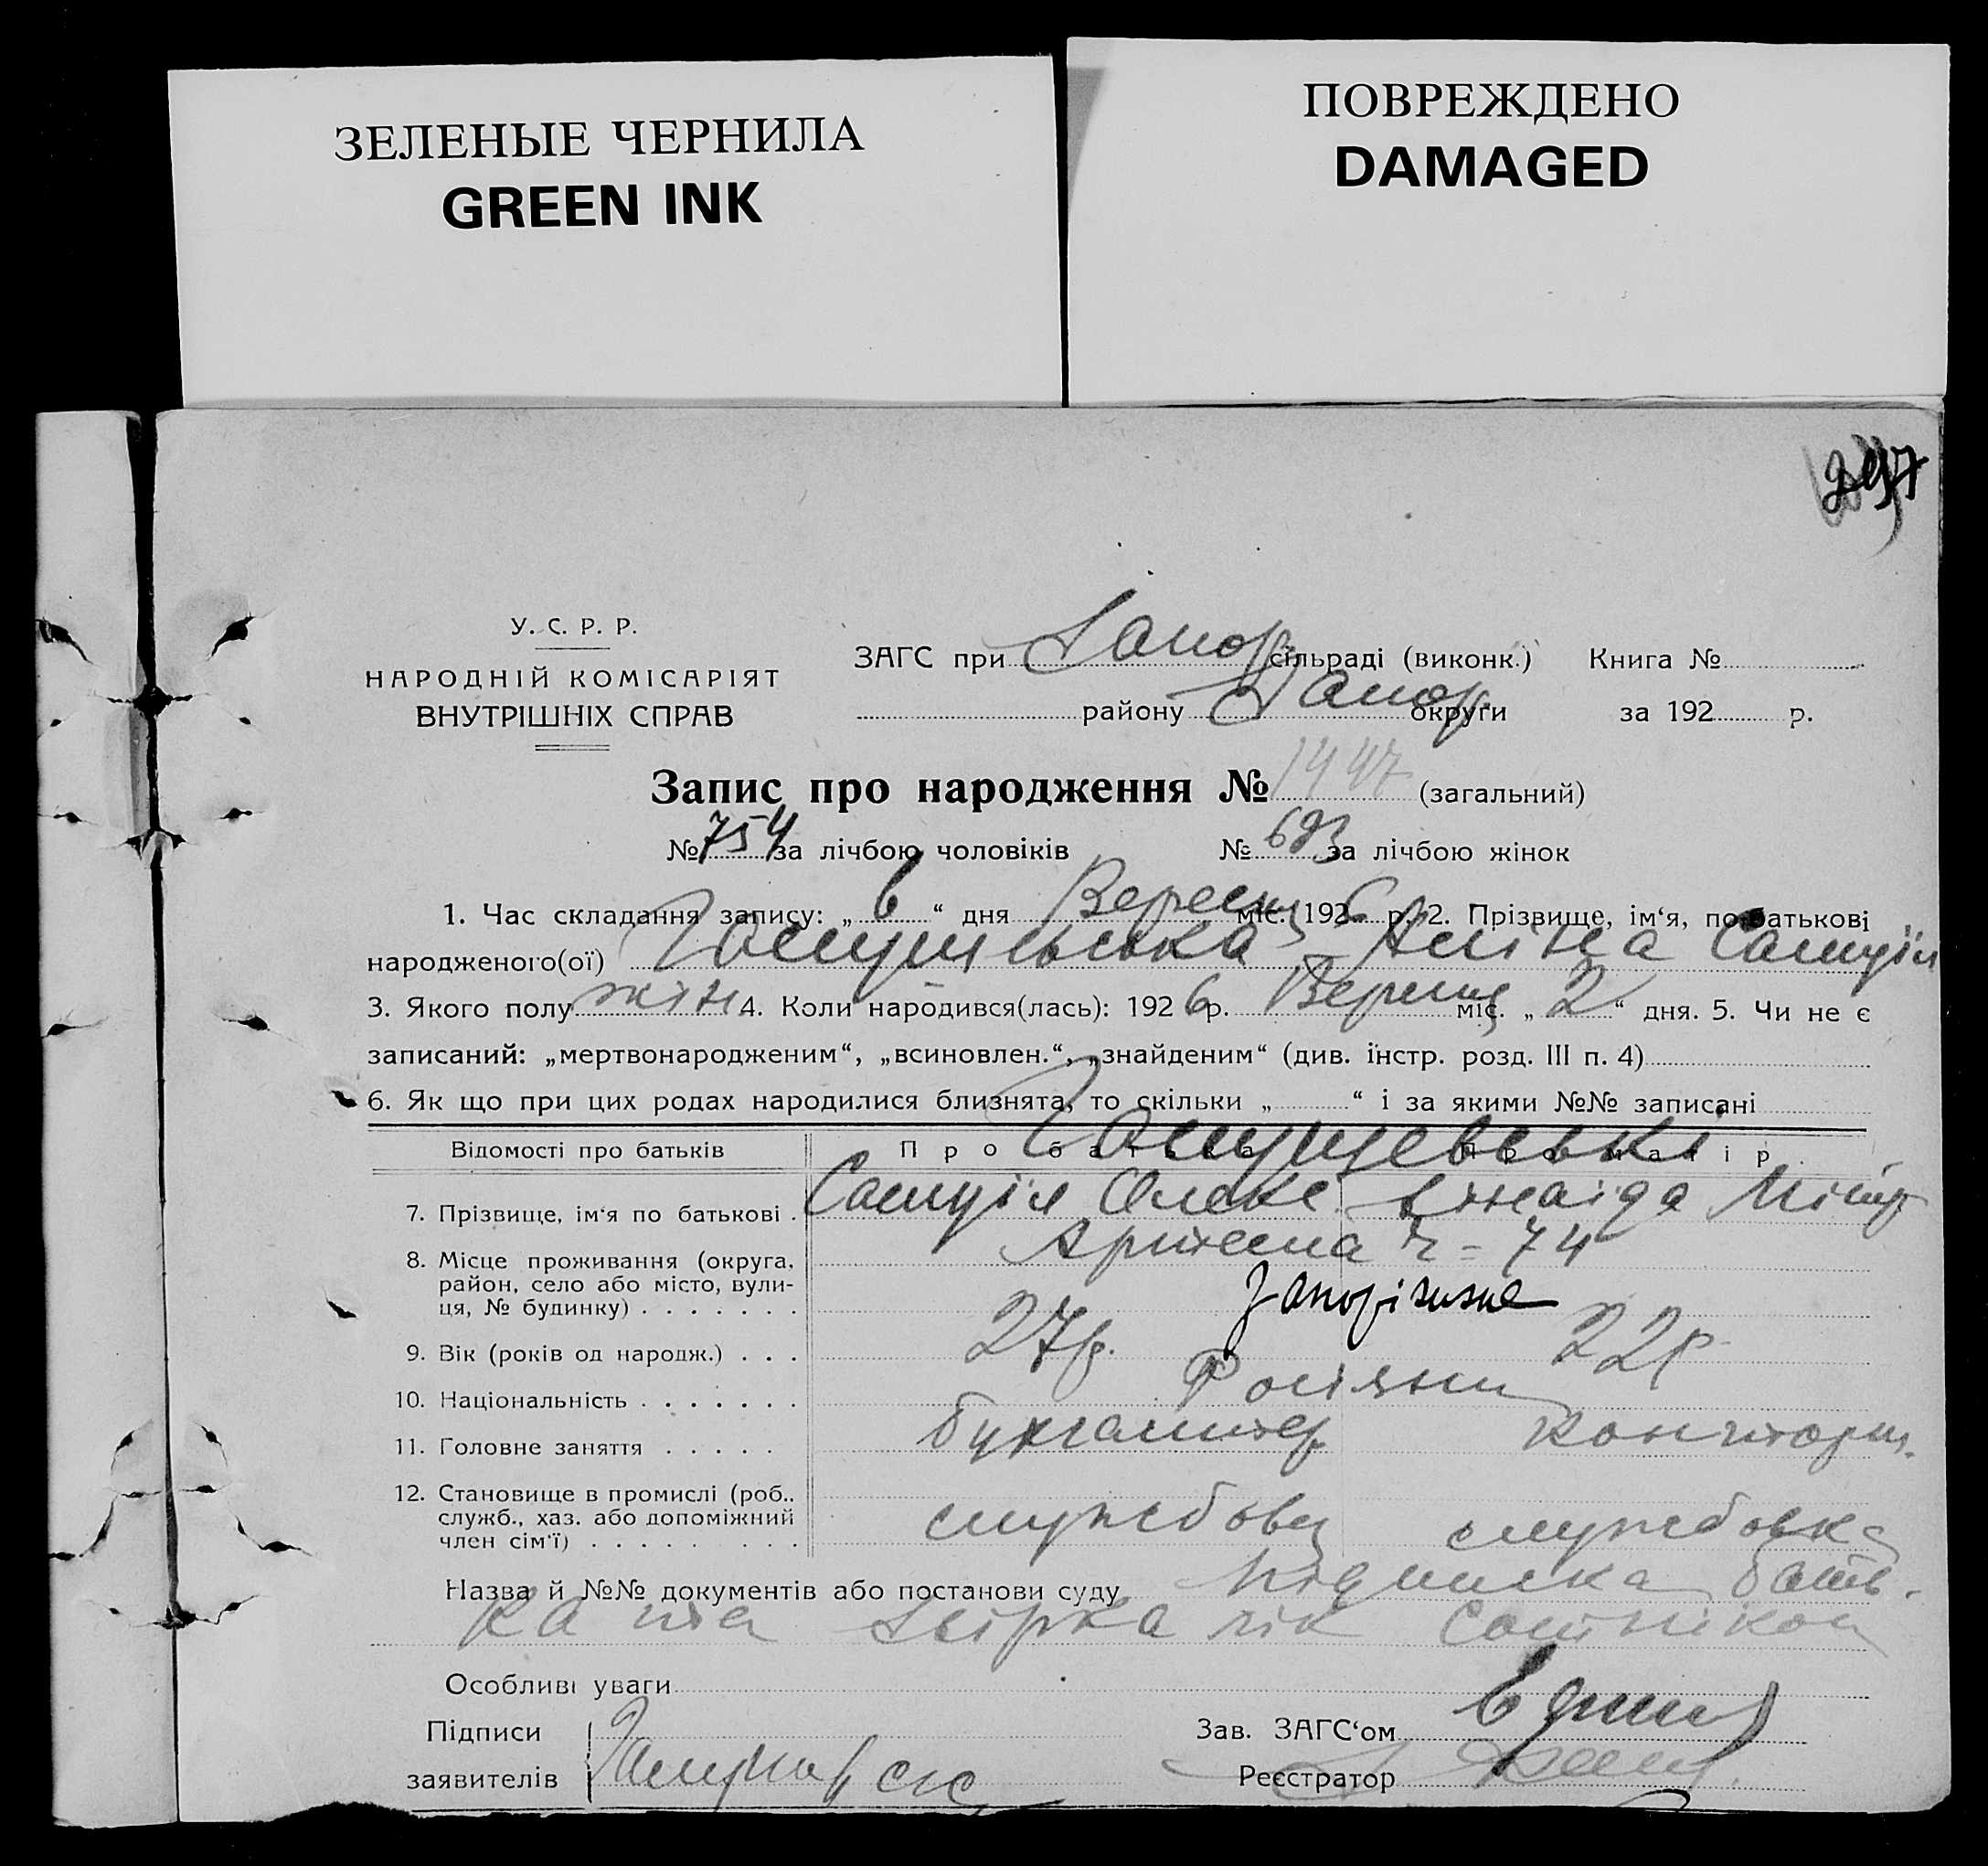 ЗЕЛЕНЫЕ ЧЕРНИЛА
GREEN INK
ПОВРЕЖДЕНО
DAMAGED
297
У. С. Р. Р.
НАРОДНІЙ КОМІСАРІЯТ
ВНУТРІШНІХ СПРАВ
ЗАГС при Запор сільраді (виконк.) Книга №
району Запор. округи за 192 р.
Запис про народження № 1447 (загальний)
№ 754 за лічбою чоловіків № 693 за лічбою жінок
1. Час складання запису: „ 6 “ дня Вересня міс. 1926 р. 2. Прізвище, ім‘я, по батькові
народженого(ої) Аліна Самуїл
3. Якого полу жін 4. Коли народився(лась): 1926 р. Вересня міс. „ 2 “ дня. 5. Чи не є
записаний: „мертвонародженим“, „всиновлен.“, „знайденим“ (див. інстр. розд. III п. 4)
6. Як що при цих родах народилися близнята, то скільки „ “ і за якими №№ записані
Відомості про батьків Про батька Про матір
7. Прізвище, ім‘я по батькові . Самуїл Олекс. Зінаіда
8. Місце проживання (округа, Артема ч = 74
район, село або місто, вули-
ця, № будинку) . . . . . . . Запоріжжє
9. Вік (років од народж.) . . . 27р. 22р
10. Національність . . . . . . . Росіяни
11. Головне заняття . . . . . бухгалтер конторщ.
12. Становище в промислі (роб..
служб., хаз. або допоміжний
член сім‘ї) . . . . . . . . . службовец службовка
Назва й №№ документів або постанови суду підписка бать-
ка та
Особливі уваги
Підписи
заявителів
Зав. ЗАГС‘ом
Реєстратор